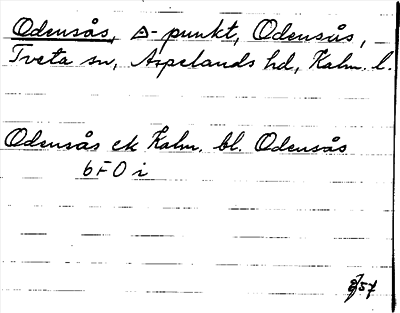 Odensås, △-punkt, Odensås,
Tveta sn, Aspelands hd, Kalm. l.
Odensås ek Kalm. bl. Odensås
6F0i